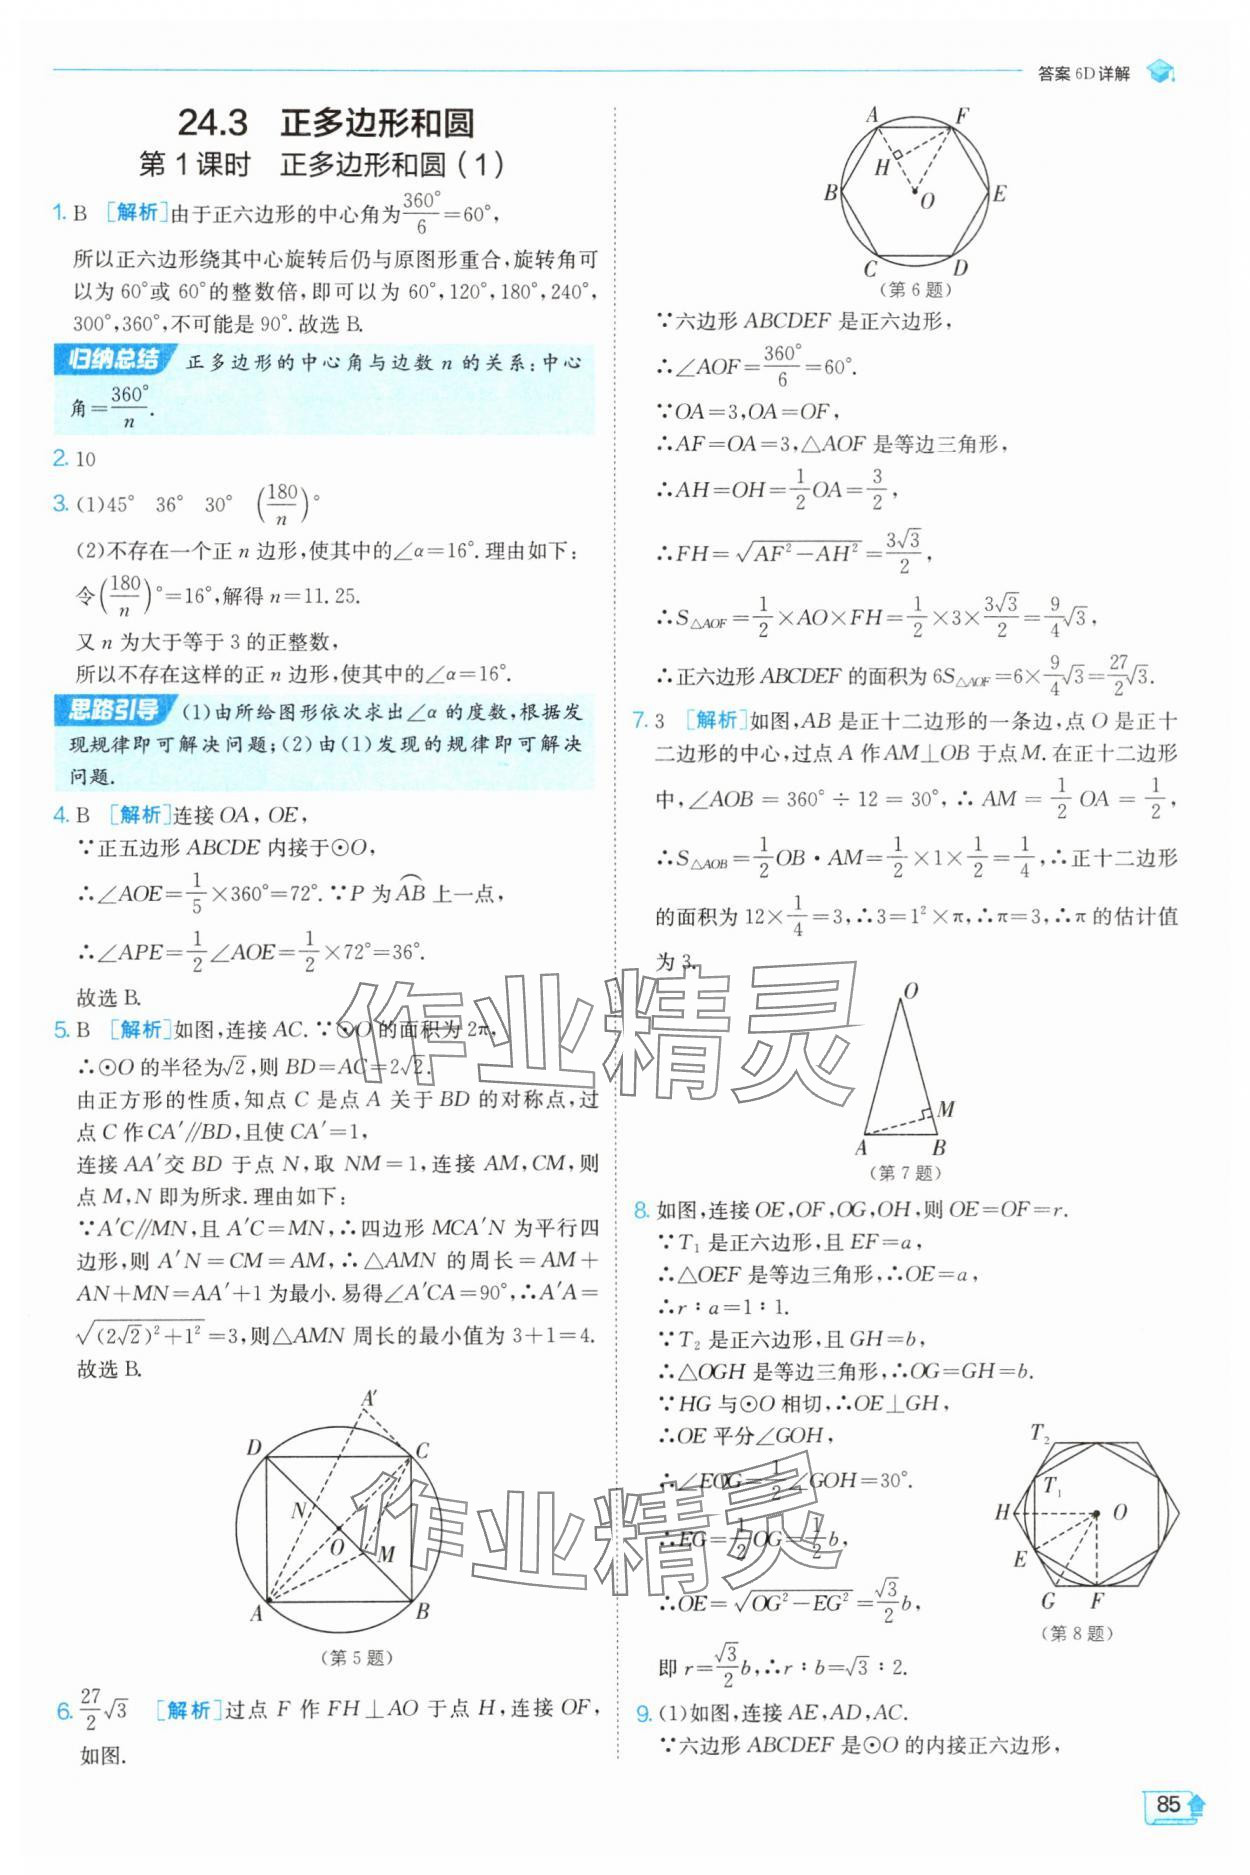 答案6D详解
24.3 正多边形和圆
第1课时 正多边形和圆(1)
1. B [解析]由于正六边形的中心角为360°/6=60°,
所以正六边形绕其中心旋转后仍与原图形重合,旋转角可
以为60°或60°的整数倍,即可以为60°,120°,180°,240°,
300°,360°,不可能是90°.故选B.
归纳总结 正多边形的中心角与边数n的关系:中心
角=360°/n.
2. 10
3. (1)45° 36° 30° (180/n)°
(2)不存在一个正n边形,使其中的∠α=16°.理由如下:
令(180/n)°=16°,解得n=11.25.
又n为大于等于3的正整数,
所以不存在这样的正n边形,使其中的∠α=16°.
思路引导 (1)由所给图形依次求出∠α的度数,根据发
现规律即可解决问题;(2)由(1)发现的规律即可解决
问题.
4. B [解析]连接OA,OE,
∵正五边形ABCDE内接于⊙O,
∴∠AOE=1/5×360°=72°.∵P为⌒AB上一点,
∴∠APE=1/2∠AOE=1/2×72°=36°.
故选B.
5. B [解析]如图,连接AC.∵⊙O的面积为2π,
∴⊙O的半径为√2,则BD=AC=2√2.
由正方形的性质,知点C是点A关于BD的对称点,过
点C作CA′∥BD,且使CA′=1,
连接AA′交BD于点N,取NM=1,连接AM,CM,则
点M,N即为所求.理由如下:
∵A′C∥MN,且A′C=MN,∴四边形MCA′N为平行四
边形,则A′N=CM=AM,∴△AMN的周长=AM+
AN+MN=AA′+1为最小.易得∠A′CA=90°,∴A′A=
√((2√2)²+1²)=3,则△AMN周长的最小值为3+1=4.
故选B.
A′
D
C
N
O
M
A
B
(第5题)
6. 27/2√3 [解析]过点F作FH⊥AO于点H,连接OF,
如图.
A
F
H
B
O
E
C
D
(第6题)
∵六边形ABCDEF是正六边形,
∴∠AOF=360°/6=60°.
∵OA=3,OA=OF,
∴AF=OA=3,△AOF是等边三角形,
∴AH=OH=1/2OA=3/2,
∴FH=√(AF²-AH²)=3√3/2,
∴S△AOF=1/2×AO×FH=1/2×3×3√3/2=9/4√3,
∴正六边形ABCDEF的面积为6S△AOF=6×9/4√3=27/2√3.
7. 3 [解析]如图,AB是正十二边形的一条边,点O是正十
二边形的中心,过点A作AM⊥OB于点M.在正十二边形
中,∠AOB=360°÷12=30°,∴AM=1/2OA=1/2,
∴S△AOB=1/2OB·AM=1/2×1×1/2=1/4,∴正十二边形
的面积为12×1/4=3,∴3=1²×π,∴π=3,∴π的估计值
为3.
O
M
A
B
(第7题)
8. 如图,连接OE,OF,OG,OH,则OE=OF=r.
∵T₁是正六边形,且EF=a,
∴△OEF是等边三角形,∴OE=a,
∴r∶a=1∶1.
∵T₂是正六边形,且GH=b,
∴△OGH是等边三角形,∴OG=GH=b.
∵HG与⊙O相切,∴OE⊥GH,
∴OE平分∠GOH,
∴∠EOG=1/2∠GOH=30°.
∴EG=1/2OG=1/2b,
∴OE=√(OG²-EG²)=√3/2b,
即r=√3/2b,∴r∶b=√3∶2.
T₂
T₁
H
O
E
G
F
(第8题)
9. (1)如图,连接AE,AD,AC.
∵六边形ABCDEF是⊙O的内接正六边形,
85
作业精灵
作业精灵